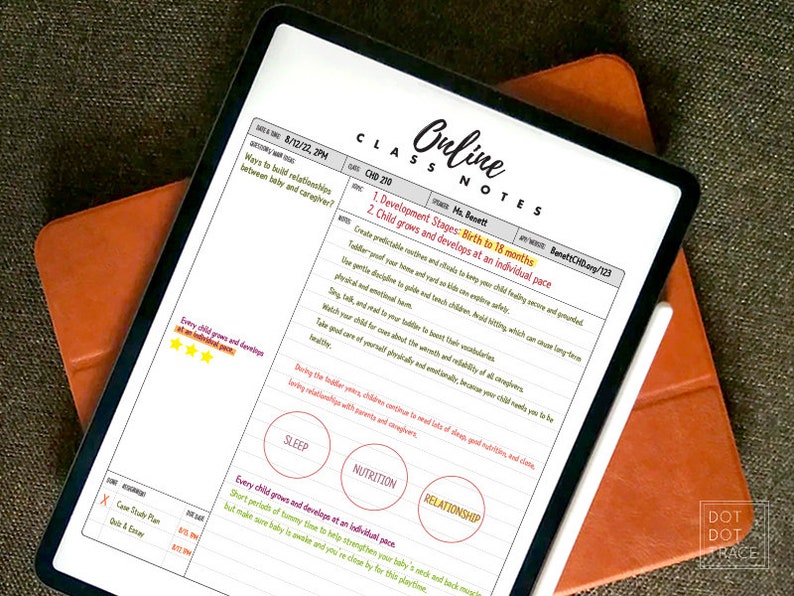 Online
CLASS NOTES
DATE & TIME: 8/12/22, 2PM
CLASS: CHD 210
SPEAKER: Ms. Benett
APP/WEBSITE: BenettCHD.org/123
QUESTIONS/MAIN IDEAS:
Ways to build relationships
between baby and caregiver?
Every child grows and develops
at an individual pace.
TOPIC:
1. Development Stages: Birth to 18 months
2. Child grows and develops at an individual pace
NOTES:
Create predictable routines and rituals to keep your child feeling secure and grounded.
Toddler-proof your home and yard so kids can explore safely.
Use gentle discipline to guide and teach children. Avoid hitting, which can cause long-term
physical and emotional harm.
Sing, talk, and read to your toddler to boost their vocabularies.
Watch your child for cues about the warmth and reliability of all caregivers.
Take good care of yourself physically and emotionally, because your child needs you to be
healthy.
During the toddler years, children continue to need lots of sleep, good nutrition, and close,
loving relationships with parents and caregivers.
SLEEP
NUTRITION
RELATIONSHIP
Every child grows and develops at an individual pace.
Short periods of tummy time to help strengthen your baby's neck and back muscle
but make sure baby is awake and you're close by for this playtime.
DONE ASSIGNMENT DUE DATE
X Case Study Plan 8/15, 1PM
Quiz & Essay 8/17, 1PM
DOT
DOT
TRACE